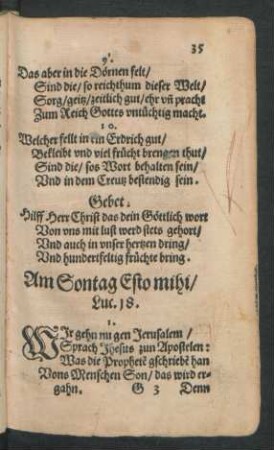 35
9.
Das aber in die Dörnen felt/
Sind die/ so reichthum dieser Welt/
Sorg/geitz/zeitlich gut/ehr vñ pracht
Zum Reich Gottes vntüchtig macht.
10.
Welcher fellt in ein Erdrich gut/
Bekleibt vnd viel frücht brengen thut/
Sind die/ sos Wort behalten sein/
Vnd in dem Creutz bestendig sein.
Gebet.
Hilff Herr Christ das dein Göttlich wort
Von vns mit lust werd stets gehort/
Vnd auch in vnser hertzen dring/
Vnd hundertfeltig früchte bring.
Am Sontag Esto mihi/
Luc. 18.
1.
WIr gehn nu gen Jerusalem/
Sprach Jhesus zun Apostelen:
Was die Prophetē gschriebē han
Vons Menschen Son/ das wird er-
gahn. G 3 Denn